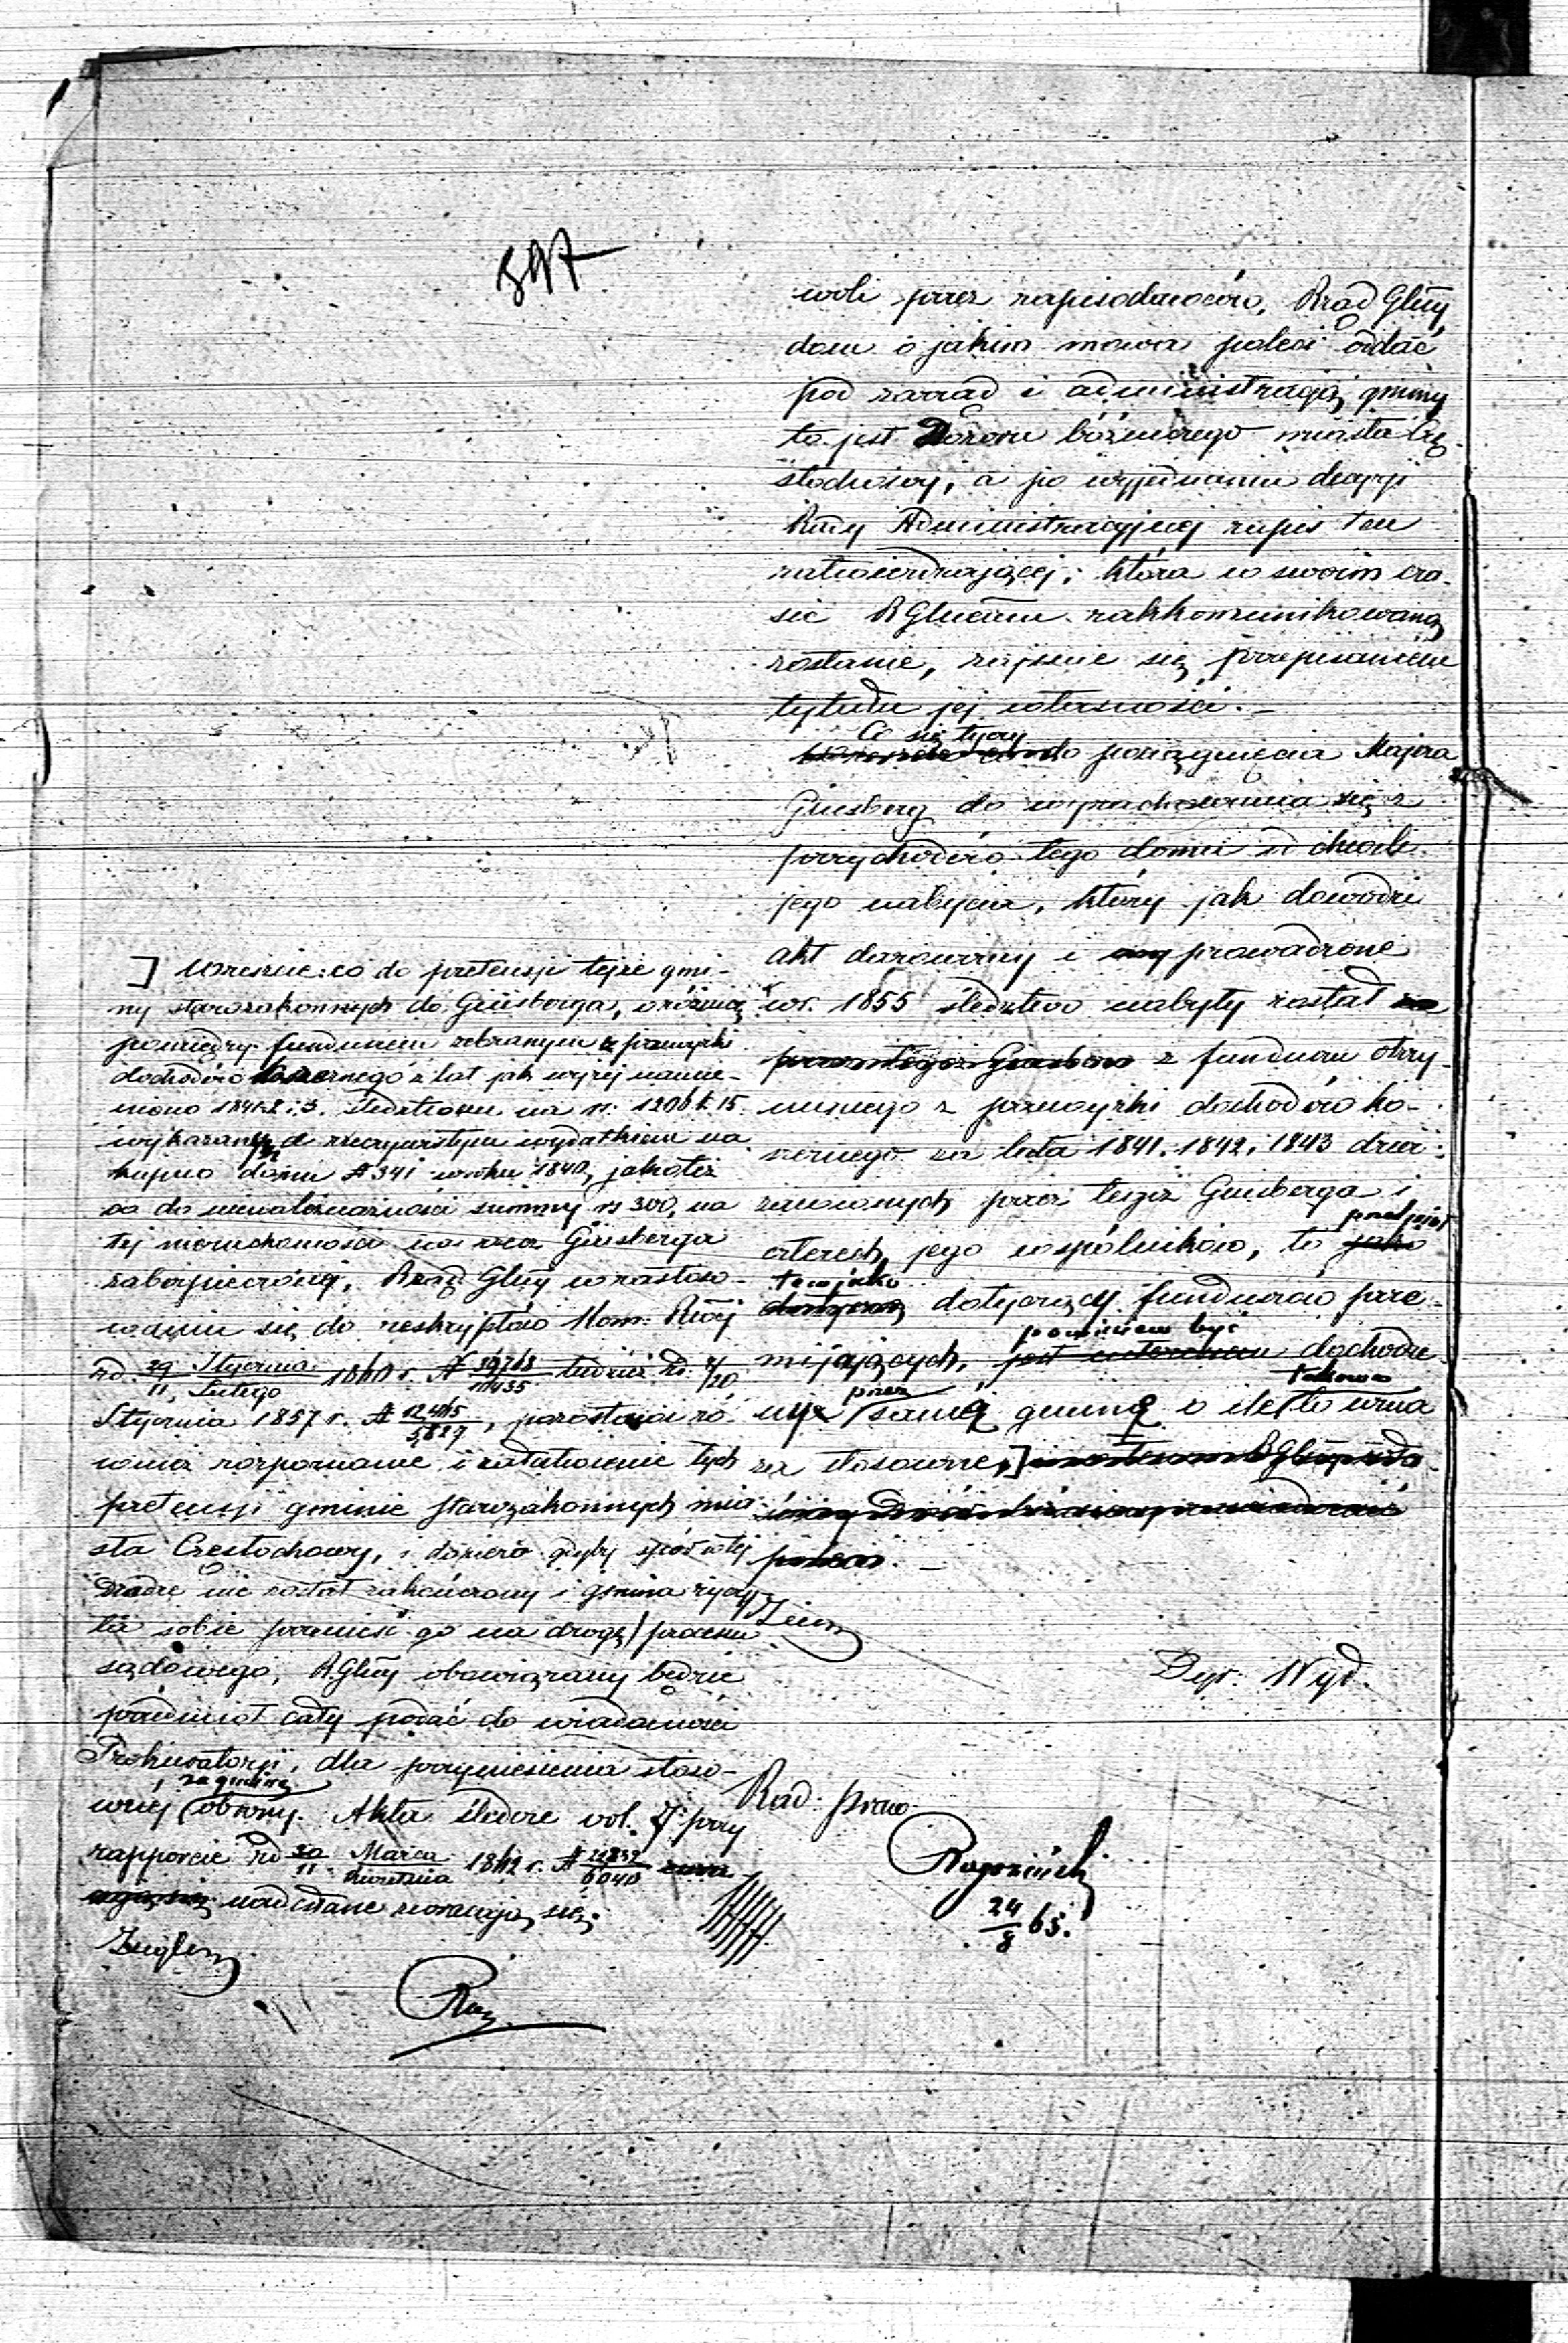 597
woli przez zapisodawców, Rząd Glny
dom o jakim mowa poleci oddać
pod zarząd i administracją gminy
to jest Dozoru bóżniczego miasta Czę-
stochowy, a po wyjednaniu decyzji
Rady Administracyjnej zapis ten
zatwierdzającej, która w swoim cza-
sie RGlnemu zakkomunikowaną
zostanie, zajmie się przepisaniem
tytułu jej własności. –
Co się tyczy
do pociągnięcia Majera
Ginsberg do wyrachowania się z
przychodów tego domu od chwili
jego nabycia, który jak dowodzi
akt darowizny i prowadzone
w r. 1855 śledztwo nabyty został
z funduszu otrzy-
manego z przewyżki dochodów ko-
szernego za lata 1841. 1842 i 1843 dzier-
żawionych przez tegoż Ginsberga i
czterech jego wspólników, to przedmiot
ten jako dotyczący funduszów prze-
mijających, powinien być dochodzo-
nym przez samą gminę o ile takowa to uzna
za stosowne,]
Ziem
Dyr: Wyd.
Rad: praw
Rogoziński
24/8 65.
] Wreszcie: co do pretensji tejże gmi-
ny starozakonnych do Ginsberga, o różnicę
pomiędzy funduszem zebranym z przewyżki
dochodów koszernego z lat jak wyżej namie-
niono 1841. 2 i 3. śledztwem na rs: 1206 k. 15
wykazanym a rzeczywistym wydatkiem na
kupno domu # 341 w roku 1840, jakoteż
co do nienależności summy rs 300, na
tej nieruchomości na rzecz Ginsberga
zabezpieczonej, Rząd Glny w zastoso-
waniu się do reskryptów Kom: Rząd
z d. 29/11 Stycznia/Lutego 1860 r. # 39763/11435 tudzież z d. 8/20
Stycznia 1857 r. # 12445/5829, pozostawi ró-
wnież rozpoznanie i załatwienie tych
pretensji gminie starozakonnych mia-
sta Częstochowy, i dopiero gdyby spór w tej
drodze nie został zakończony i gmina życzy-
ła sobie przenieść go na drogę processu
sądowego, RGlny obowiązany będzie
przedmiot cały podać do wiadomości
Prokuratorji, dla przyniesienia stoso-
wnej za gminą obrony. Akta śledcze vol. 7 przy
rapporcie z d 30/11 Marca/Kwietnia 1862 r. # 21832/6040
nadesłane zwracają się.
Ziegler
Rog.